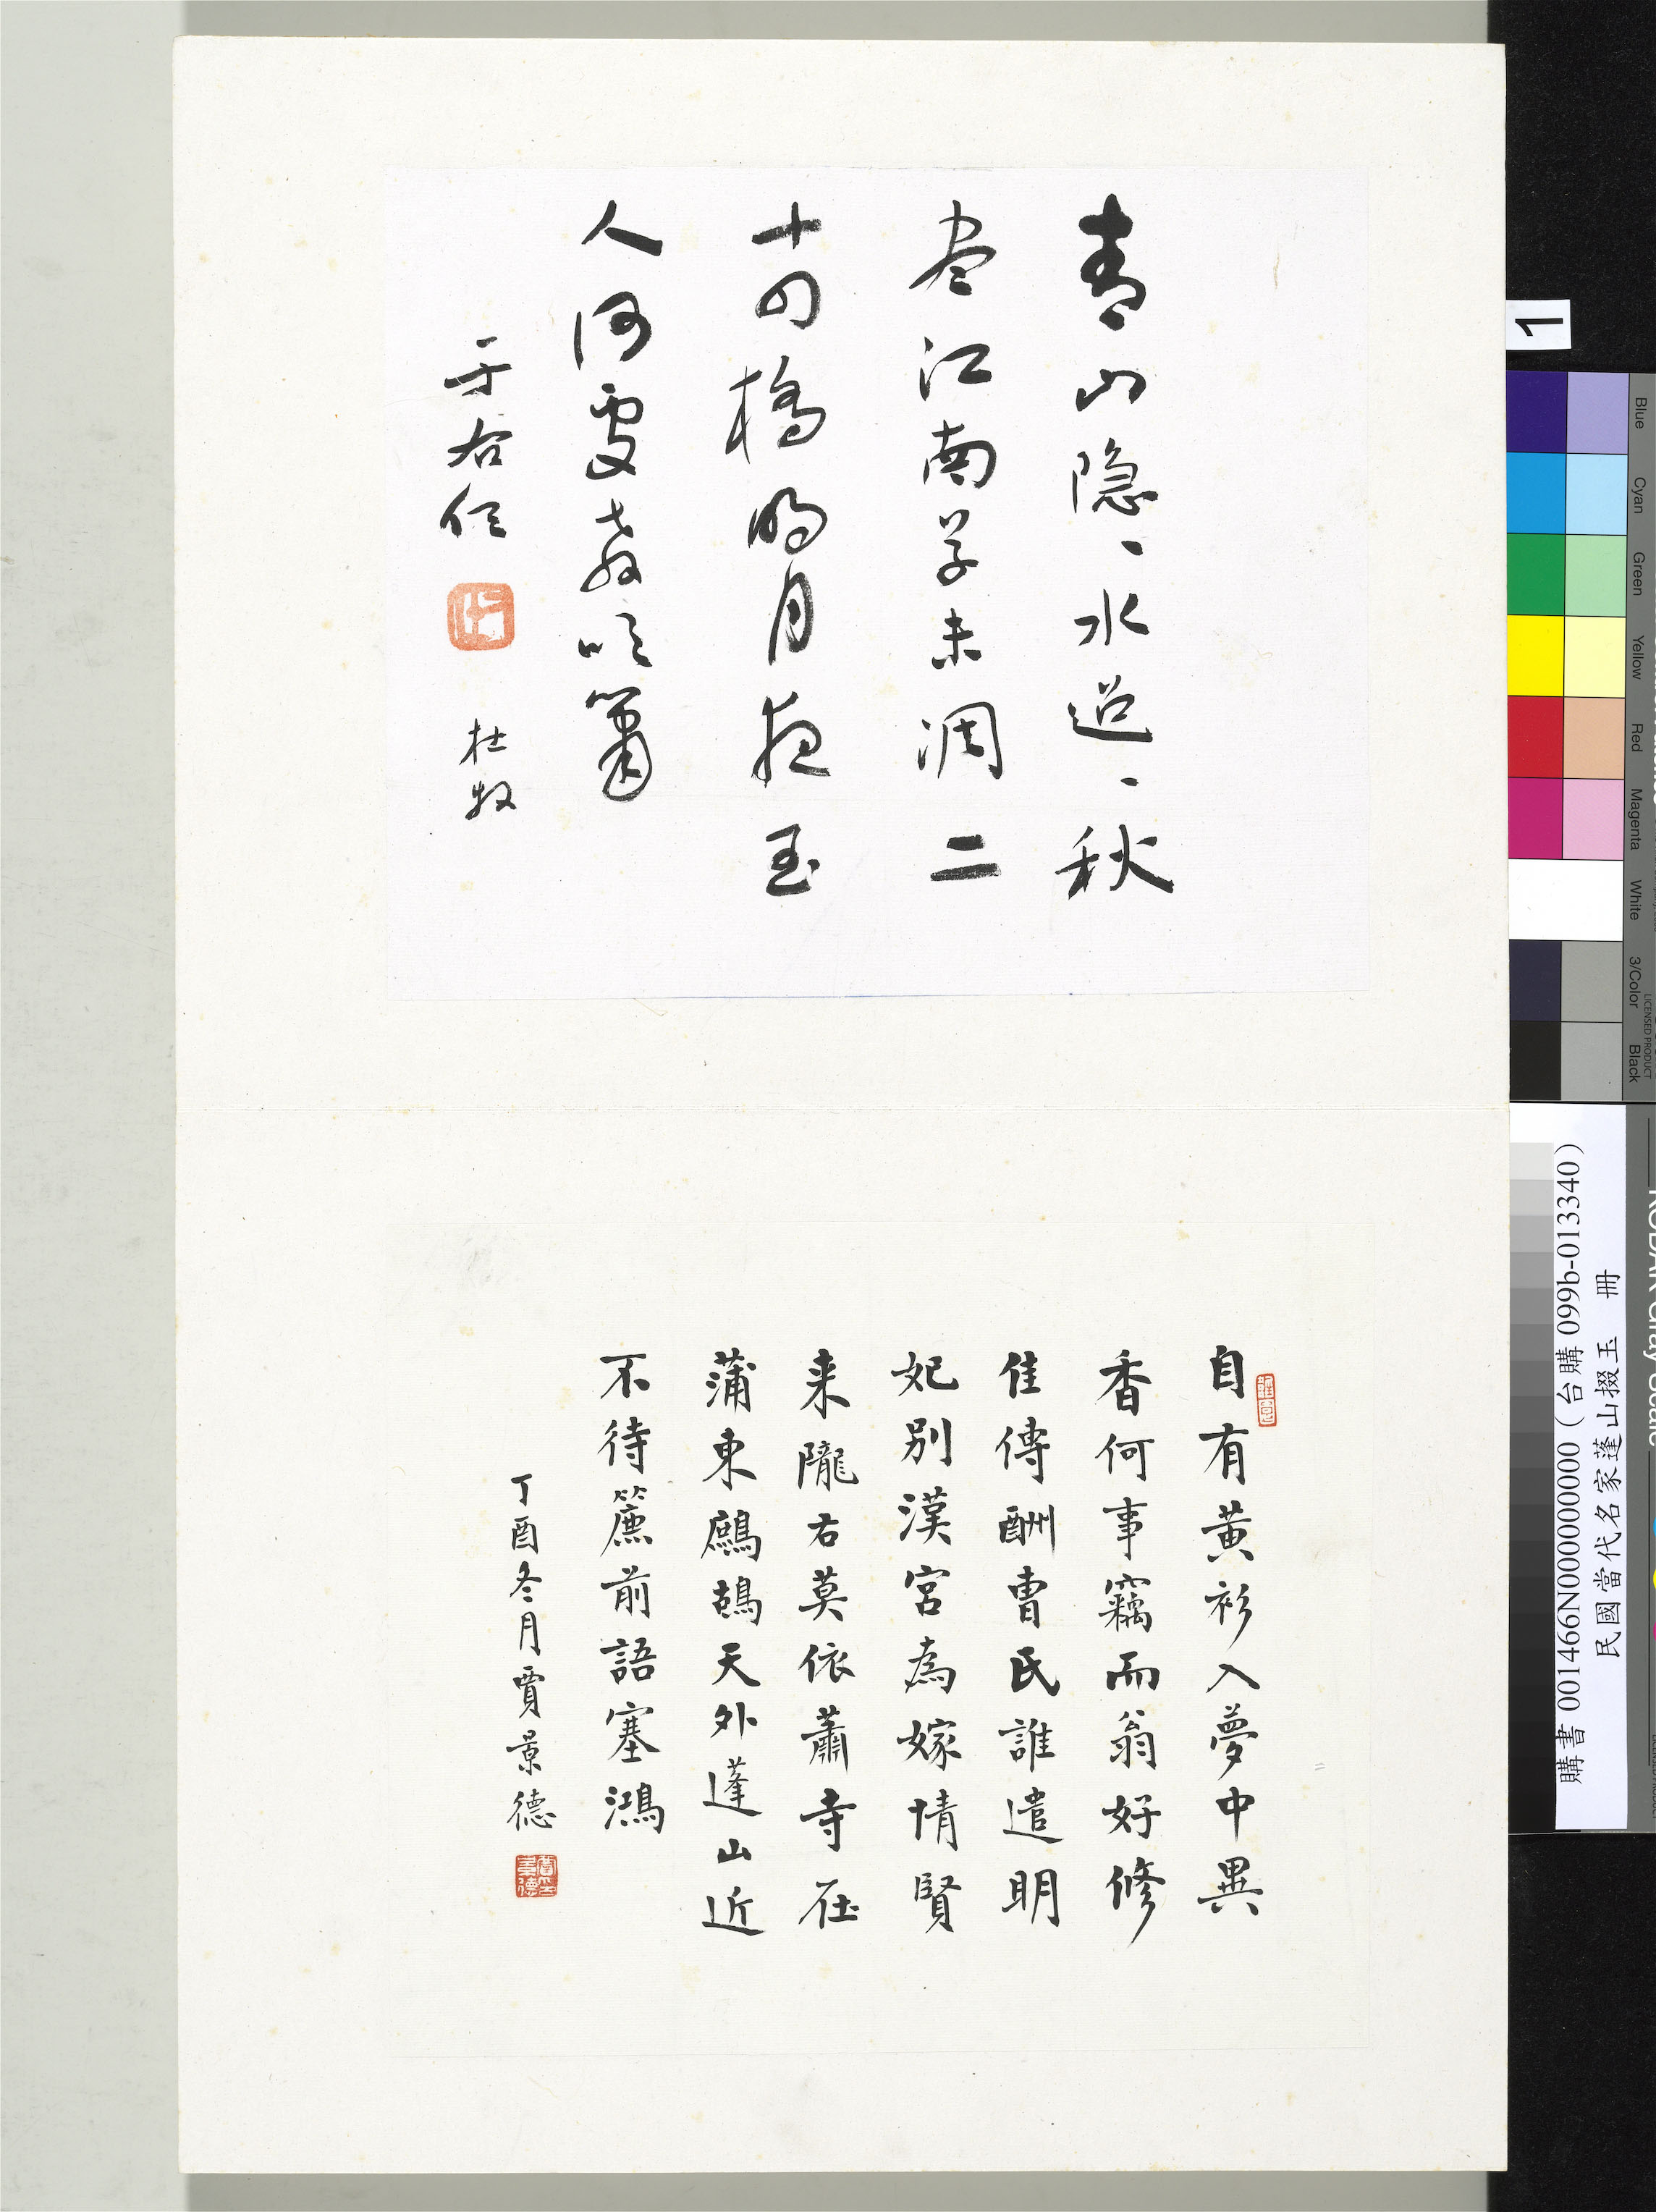 青山隐、水迢、秋
尽江南草未凋二
十四橋明月夜玉
人何處教吹簫
于右任
杜牧
自有黃衫入夢中異
香何事竊而翁好修
佳傳酬曹氏誰遣明
妃別漢宮為嫁情賢
来隴右莫依蕭寺在
蒲東鷓鴣天外蓬山近
不待簾前語塞鴻
丁酉冬月賈景德
賈景德
1
Blue
Cyan
Green
Yellow
Red
Magenta
White
3/Color
Black
LICENSED PRODUCT
購書 001466N000000000（台購 099b-013340）
民國當代名家蓬山掇玉 冊